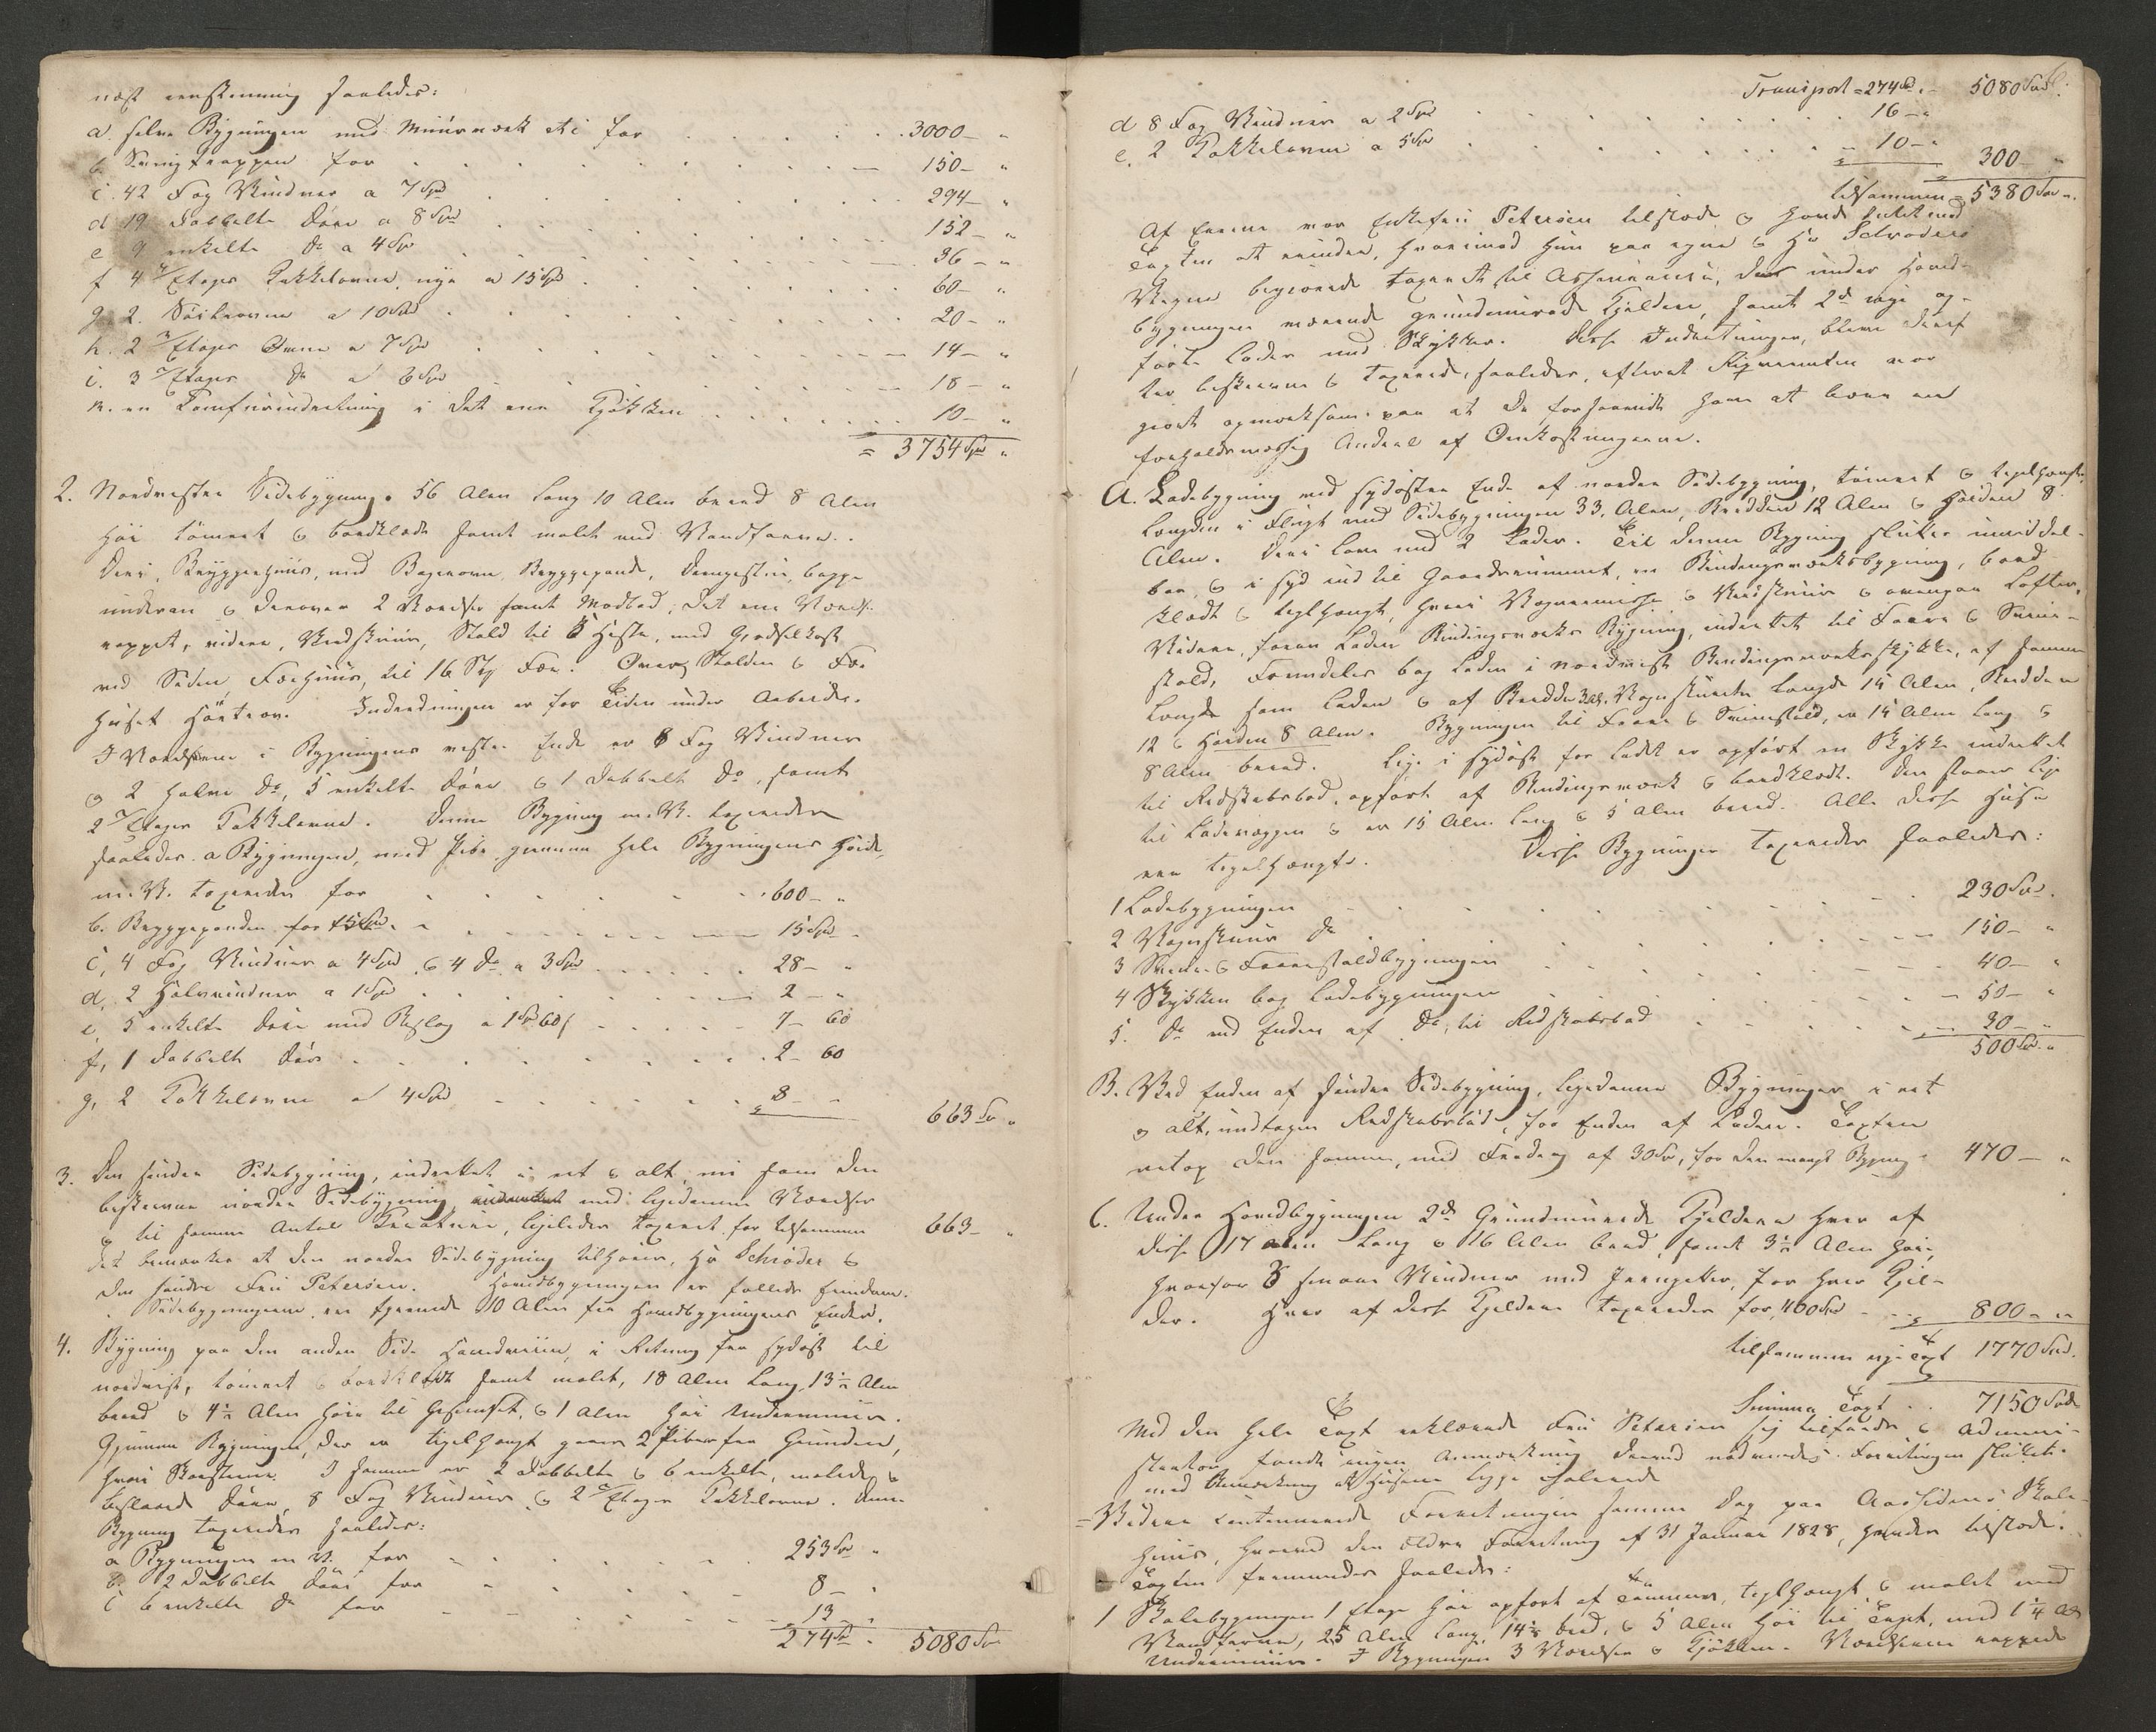 næst eenstemmig saaledes:
a. selve Bygningen med Muurværk etc for 3000- "
b. Svingtrappen for 150- "
c. 42 Fag Vinduer a 7 Spd 294- "
d 19 dobbelte Døre a 8 Spd 152- "
e 9 enkelte do a 4 Spd 36- "
f 4 Etages Kakkelovne, nye a 15 Spd 60- "
g. 2. a 10 Spd 20- "
h. 2 Etages Ovne a 7 Spd 14- "
i. 3 Etages do a 6 Spd 18- "
k. en Komfurindretning i det ene Kjøkken 10- "
= 3754 Spd "
2. Nordvestre Sidebygning. 56 Alen lang 10 Alen breed 8 Alen
høi tømret & bordklædt samt malet med Vandfarve.
Deri, Bryggerhuus, med Bagerovn, Bryggepande, Drengestue, begge
underen & derover 2 Værelser samt Madbod; det ene Værelse
rappet, videre, Vedskuur, Stald til 8 Heste, med Gjødselkast
ved Siden, Fæehuus, til 16 Stk Fæe. Over Stalden & Fæe
huset Høetrov. Indredningen er for Tiden under Arbeide.
I Værelserne i Bygningens vestre Ende er 8 Fag Vinduer
& 2 halve do, 5 enkelte Døre & 1 dobbelt do, samt
2 Etages Kakkelovne. Denne Bygning m.V. taxeredes
saaledes. a Bygningen, med Pibe gjennem hele Bygningens Høide,
m.V. taxeredes for 600- "
b. Bryggepanden for 15 Spd 15 Spd "
c, 4 Fag Vinduer a 4 Spd & 4 do a 3 Spd 28- "
d, 2 Halvvinduer a 1 Spd 2- "
e, 5 enkelte Døre med Beslag a 1 Sp 60 s 7- 60
f, 1 dobbelt Dør 2- 60
g, 2 Kakkelovne a 4 Spd 8- - 663 Sp "
3. Den søndre Sidebygning, indrettet i eet & alt, som den
beskrevne nordre Sidebygning med ligedanne Værelser
& til samme Antal Kreaturer, ligeledes taxeret for tilsammen 663- "
det bemærkes at den nordre Sidebygning tilhører, Hr Schrøder &
den søndre Fru Petersen. Hovedbygningen er fælleds Eiendom.
Sidebygningerne ere fjernede 10 Alen fra Hovedbygningens Ender.
4. Bygning paa den anden Side Hovedveien, i Retning fra sydøst til
nordvest, tømret & bordklædt samt malet, 18 Alen lang, 13 1/2 Alen
breed & 4 1/2 Alen høi til Gesimset, & 1 Alen høi Undermuur.
Gjennem Bygningen, der er tegelhængt gaaer 2 Piber fra Grunden,
hvori Skorstene. I samme er 2 dobbelte & 6 enkelte, malede &
beslaaede Døre, 8 Fag Vinduer & 2 Etages Kakkelovne. Denne
Bygning taxeredes saaledes:
a Bygningen m.V. for 253 Spd "
b. 2 dobbelte Døre for 8- "
c 6 enkelte do for 13- "
274 Sp " 5080 Sp
Transport = 274 Sp " 5080 Spd
d 8 Fag Vinduer a 2 Spd 16- "
e. 2 Kakkelovne a 5 Spd 10- " 300- "
tilsammen = 5380 Spd "
Af Eierne var Enkefrue Petersen tilstede & havde Intet mod
Taxten at erindre, hvorimod Hun paa egne & Hr Schrøders
Vegne begjærede taxeret til Assurance, den under Hoved-
bygningen værende grundmurede Kjeldere, samt 2de nye op-
førte Lader med Skykker. Disse Indretninger, bleve deref-
ter beskrevne & taxerede, saaledes, efterat Rqvirenten var
gjort opmærksom paa at De forsaavidt have at bære en
forholdsmæssig Andeel af Omkostningerne.
A. Ladebygning ved sydøstre Ende af nordre Sidebygning, tømret & tegelhængt,
Længden i Flugt med Sidebygningen 33 Alen, Bredden 12 Alen & Høiden 8
Alen. Deri Lave med 2 Lader. Til denne Bygning slutter umiddel-
bar, & i syd ud til Gaardsrummet, en Bindingsværksbygning, bord
klædt & teglhængt, hvori Vognremisse & Vedskuur & ovenpaa Lofter.
Videre, foran Laden Bindingsværks Bygning, indrettet til Faare & Sviin-
stald, Fremdeles bag Laden i nordvest Bindingsværksskykke, af samme
Længde som Laden & af Bredde 3 Al. Vognskuurets Længde 14 Alen, Bredden
12 & Høiden 8 Alen. Bygningen til Faare & Sviinstald, er 14 Alen lang &
8 Alen breed. Lige i sydøst for Ladet er opført en Skykke indrettet
til Redskabsbod, opført af Bindingsværk & bordklædt. Den staaer lige
til Ladevæggen & er 15 Alen lang & 5 Alen breed. Alle disse Huse
ere tegelhængte. Disse Bygninger taxeredes saaledes:
1 Ladebygningen 230 Spd.
2 Vognskuur do 150- "
3 Sviin- & Faarestaldbygningen 40- "
4 Skykken bag Ladebygningen 50- "
5. do ved Enden af do, til Redskabsbod 30- "
500 Spd "
B. Ved Enden af søndre Sidebygning, ligedanne Bygninger i eet
& alt, undtagen Redskabsbod, for Enden af Laden. Taxten
netop den samme, med Fradrag af 30 Sp, for den mangl Bygning 470- "
C. Under Hovedbygningen 2de Grundmurede Kjeldere hver af
disse 17 Alen lang & 16 Alen breed, samt 3 1/2 Alen høi,
hvorfor 8 smaae Vinduer med Jerngitter, for hver Kjel-
der. Hver af disse Kjeldere taxeredes for, 400 Spd 800- "
tilsammen nye Taxt 1770 Spd.
Summa Taxt 7150 Spd
Med den hele Taxt erklærede Fru Petersen sig tilfreds & Admini-
strator fandt ingen Anmærkning derved nødvendig. Forretningen sluttet
med Bemærkning at Husene ligge isolerede
= Videre continuerede Forretningen samme Dag paa Aassidens Skole-
huus, hvorved den ældre Forretning af 31 Januar 1828, havdes tilstede.
Taxten fremmedes saaledes:
1 Skolebygningen 1 Etage høi opført af Tømmer, teglhængt & malet med
Vandfarve, 25 Alen lang, 14 1/2 bred, & 5 Alen høi til Taget, med 1 1/4 Al
Undermuur. I Bygningen 3 Værelser & Kjøkken. Værelserne rappede